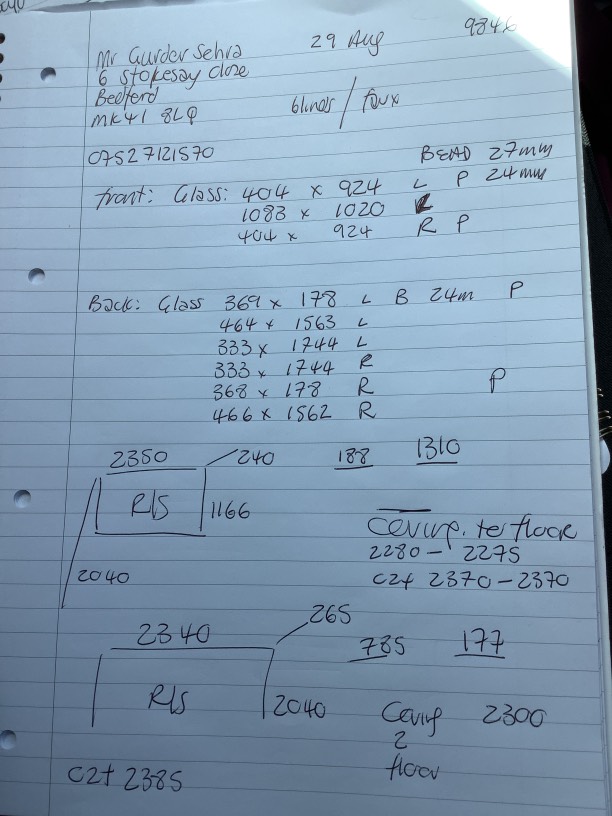 29 Aug
984x
Mr Gurder Sehra
6 Stokesay close
Bedford
MK41 8LQ
blinds / faux
07527121570
BEAD 27mm
front: Glass: 404 x 924 L P 24mm
1083 x 1020
404 x 924 R P
Back: Glass 369 x 178 L B 24m P
464 x 1563 L
333 x 1744 L
333 x 1744 R
368 x 178 R P
466 x 1562 R
2350 240 188 1310
R/S 1166
2040
to floor
2280 - 2275
C2f 2370 - 2370
265
2340 785 177
R/S 2040
2300
2
floor
C2f 2385